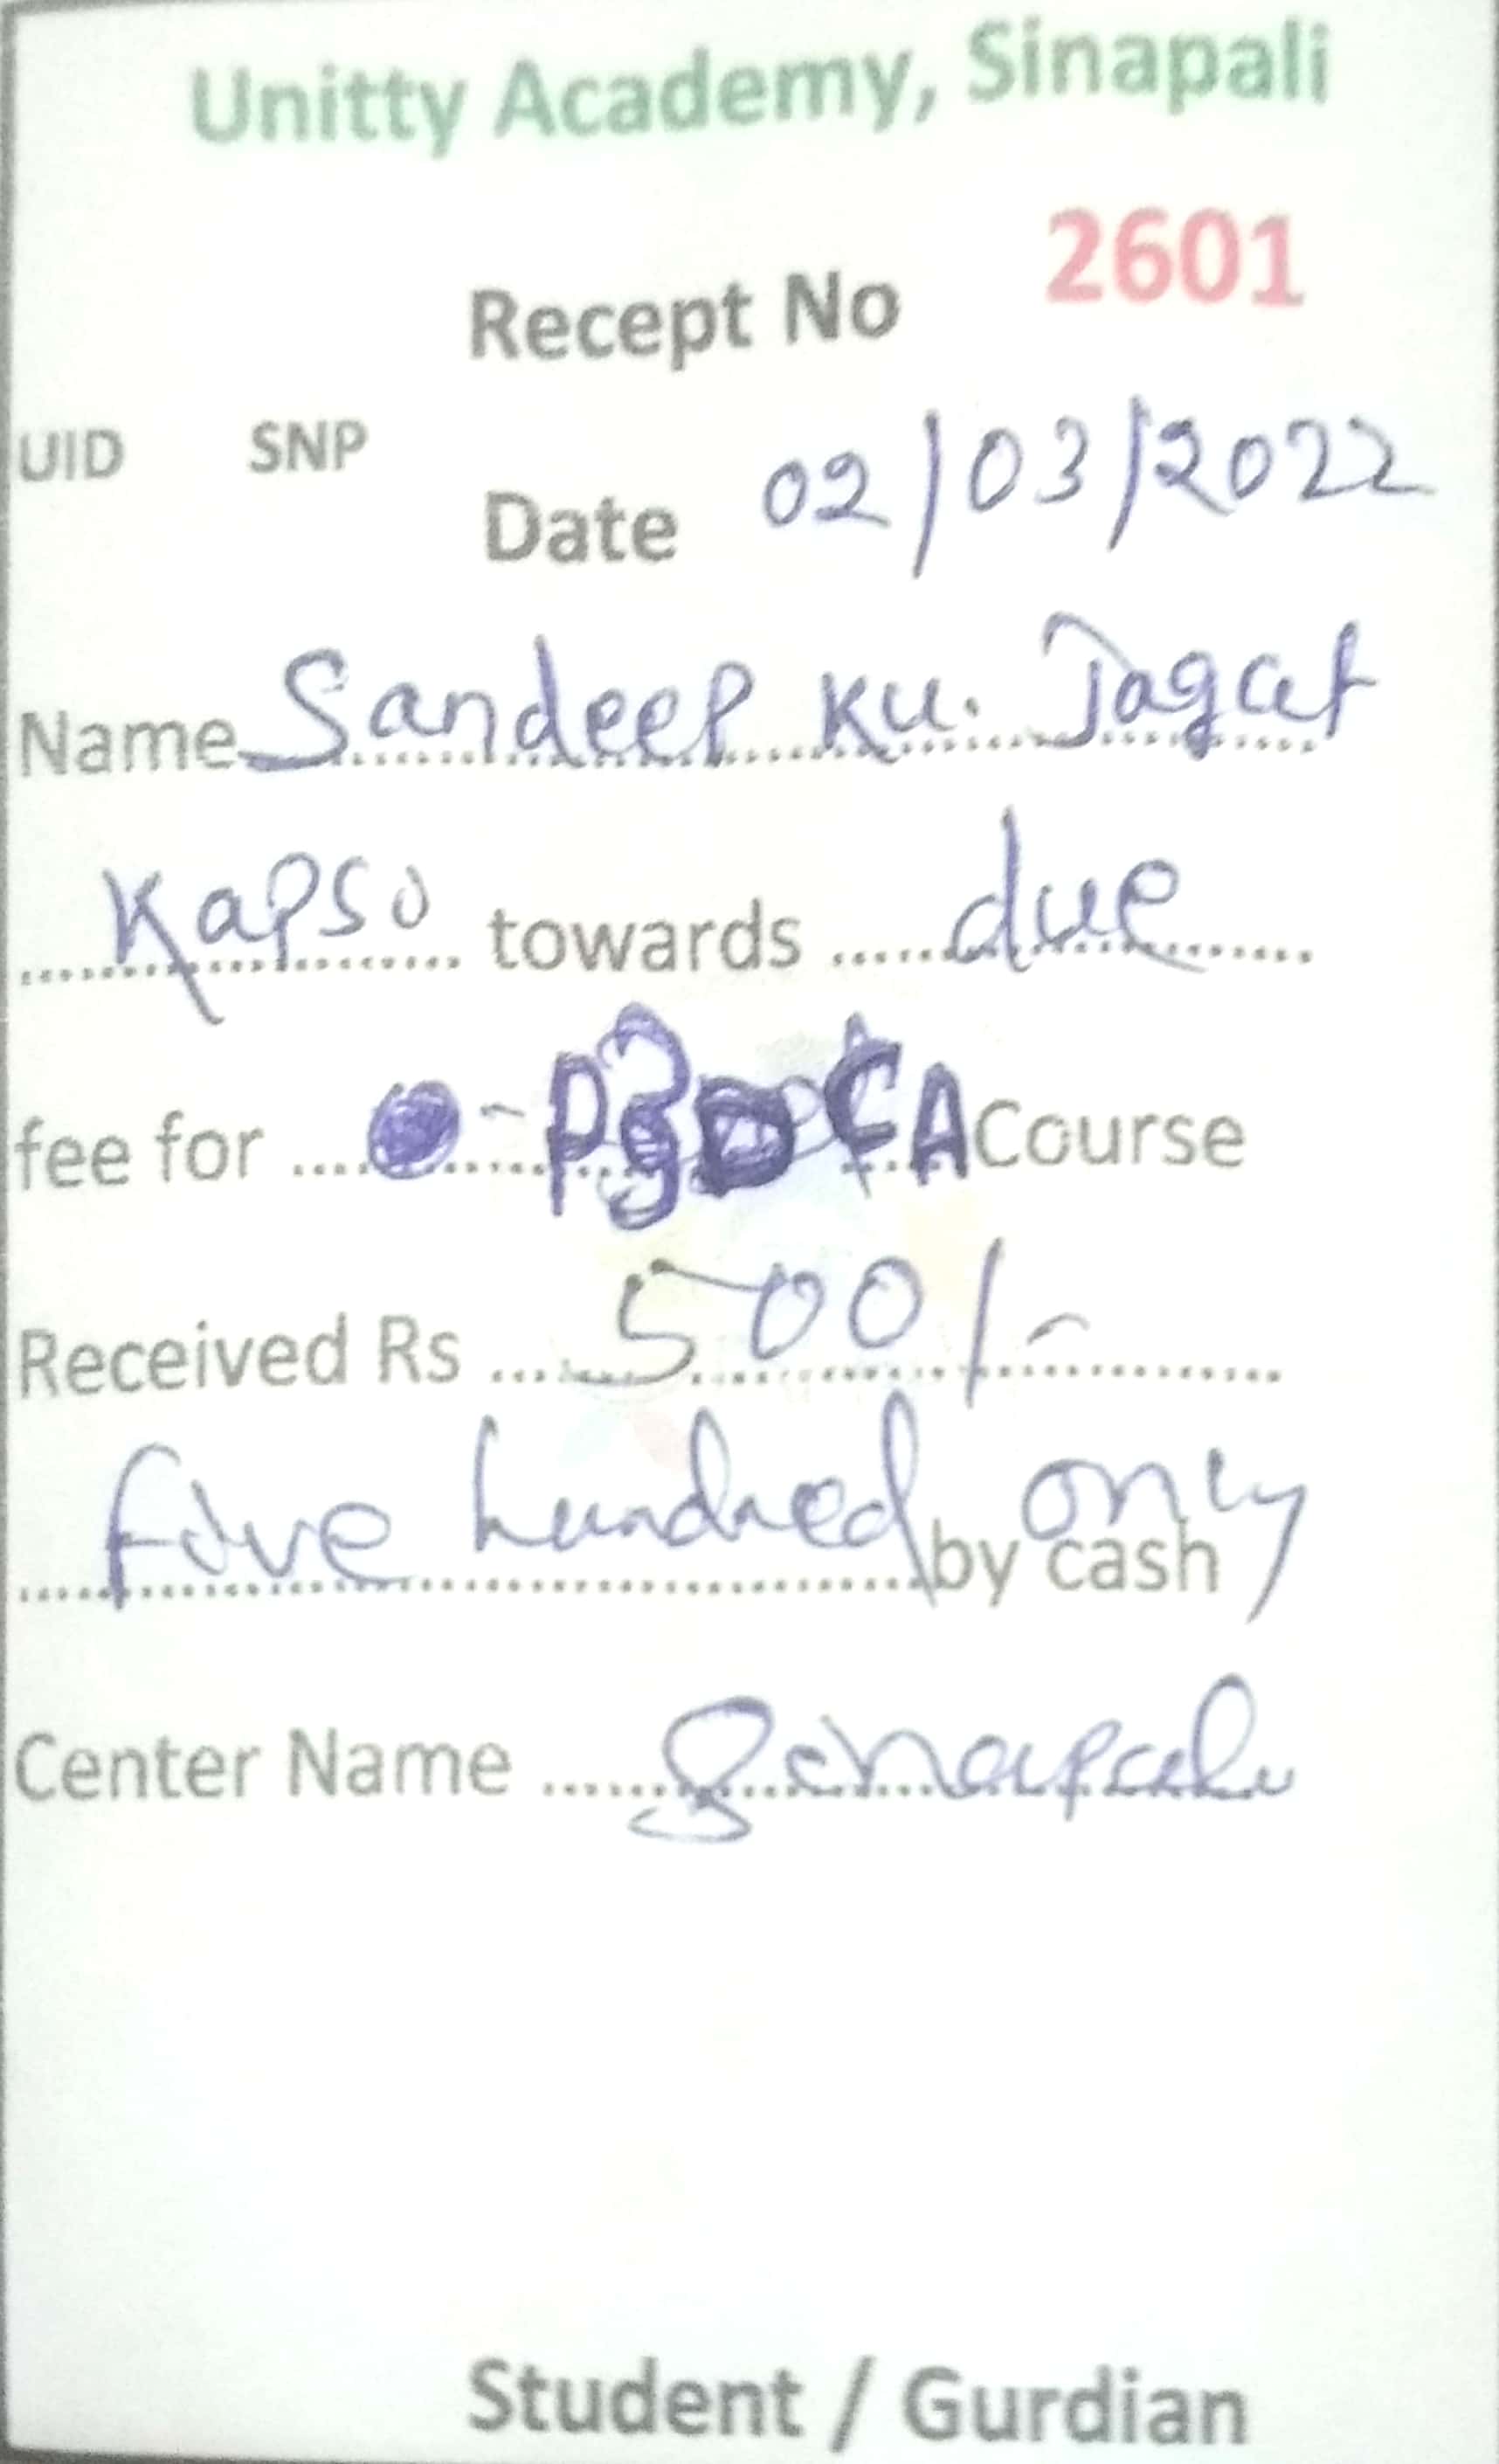 Unitty Academy, Sinapali
2601
Recept No
UID SNP
Date 02/03/2022
Name Sandeep Ku. Jagat
Kapso towards ..... due
fee for .... - PGDCA Course
Received Rs .... 500/-
Five hundred only
by cash
Center Name ..... Sinapali
Student / Gurdian